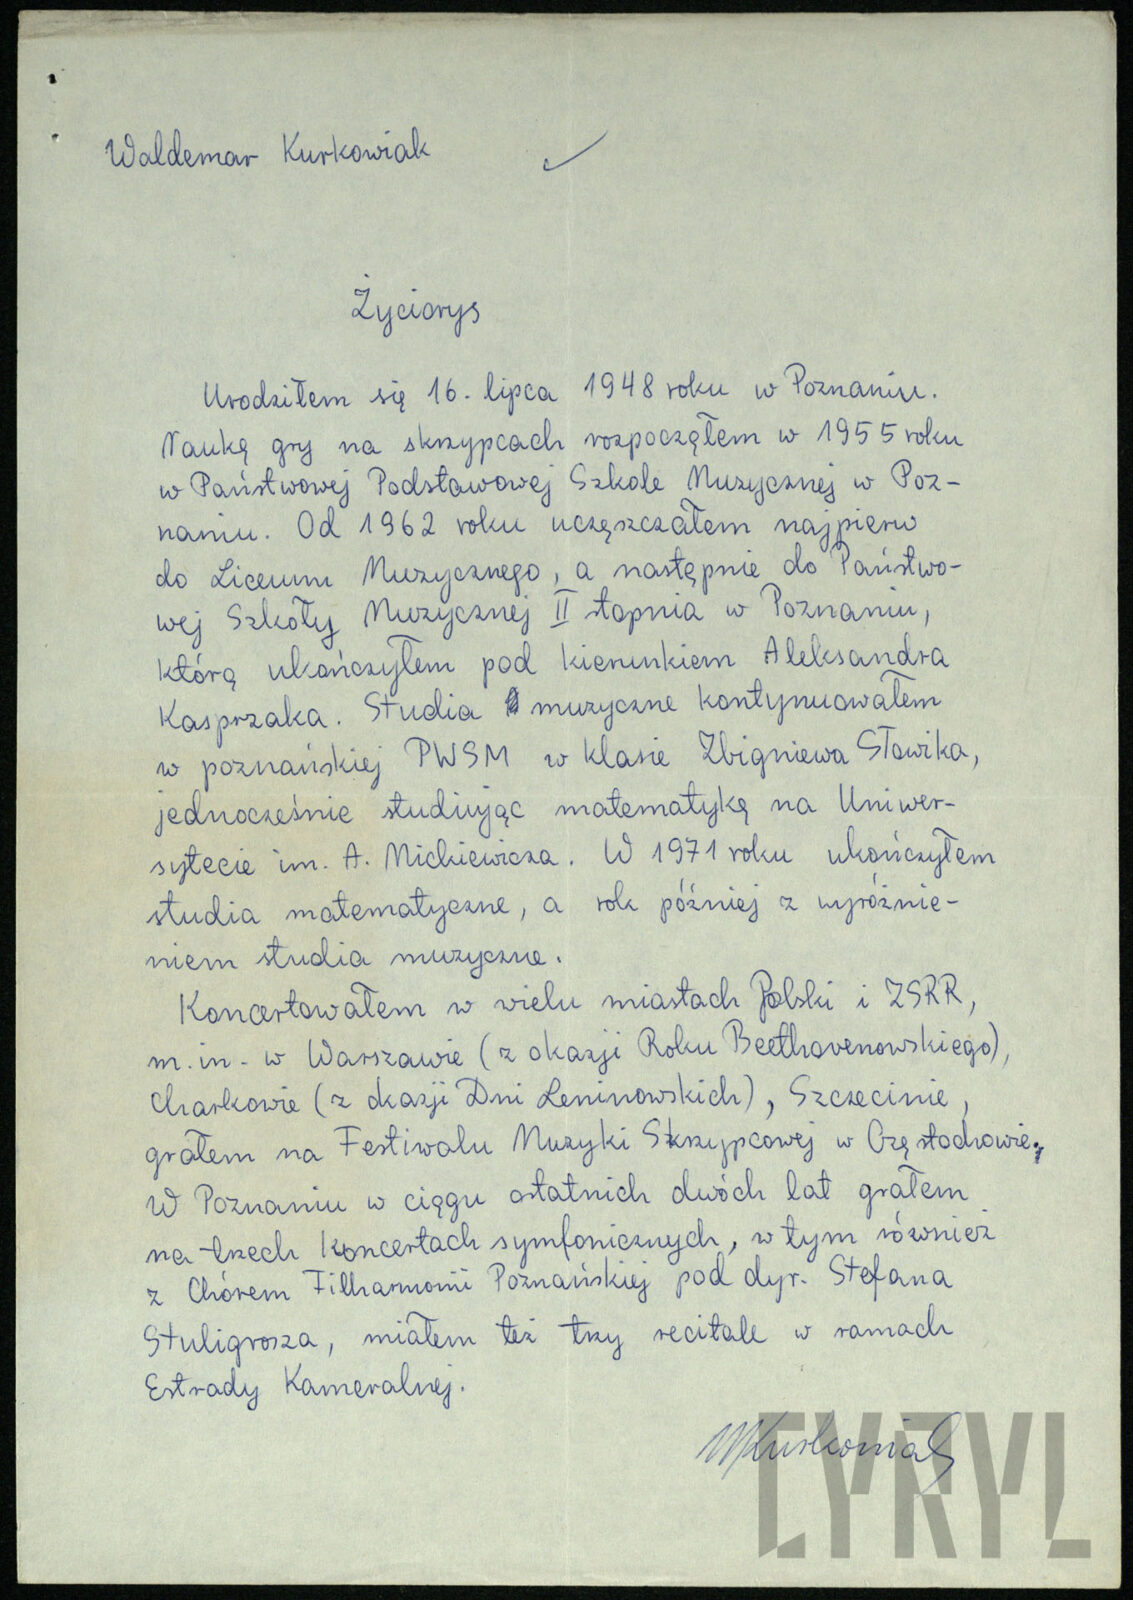 Waldemar Kurkowiak
Życiorys
Urodziłem się 16. lipca 1948 roku w Poznaniu.
Naukę gry na skrzypcach rozpocząłem w 1955 roku
w Państwowej Podstawowej Szkole Muzycznej w Poz-
naniu. Od 1962 roku uczęszczałem najpierw
do Liceum Muzycznego, a następnie do Państwo-
wej Szkoły Muzycznej II stopnia w Poznaniu,
którą ukończyłem pod kierunkiem Aleksandra
Kasprzaka. Studia muzyczne kontynuowałem
w poznańskiej PWSM w klasie Zbigniewa Sławika,
jednocześnie studiując matematykę na Uniwer-
sytecie im. A. Mickiewicza. W 1971 roku ukończyłem
studia matematyczne, a rok później z wyróżnie-
niem studia muzyczne.
Koncertowałem w wielu miastach Polski i ZSRR,
m.in. w Warszawie (z okazji Roku Beethovenowskiego),
Charkowie (z okazji Dni Leninowskich), Szczecinie,
grałem na Festiwalu Muzyki Skrzypcowej w Częstochowie.
W Poznaniu w ciągu ostatnich dwóch lat grałem
na trzech koncertach symfonicznych, w tym również
z Chórem Filharmonii Poznańskiej pod dyr. Stefana
Stuligrosza, miałem też trzy recitale w ramach
Estrady Kameralnej.
WKurkowiak
CYRYL